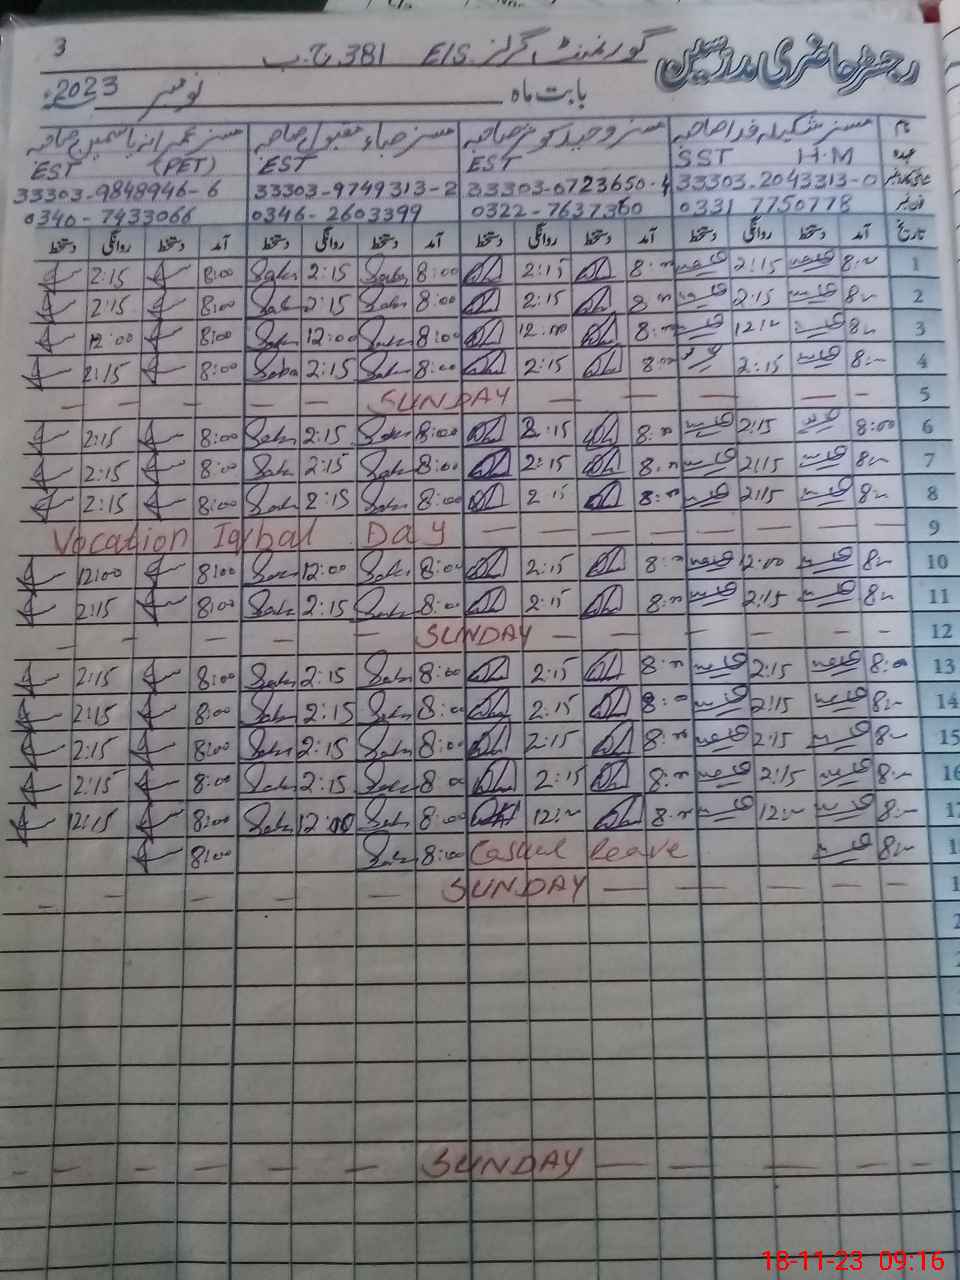 3
رجسٹر حاضری مدرسین
گورنمنٹ گرلز E/S 381 ج ب
بابت ماہ نومبر 2023ء
نام مسز شکیلہ فدا صاحبہ مسز وحید کوثر صاحبہ مسز صباء مقبول صاحبہ مسز عمرانہ یاسمین صاحبہ
عہدہ SST H.M EST EST EST (PET)
33303-2043313-0 33303-0723650-4 33303-9749313-2 33303-9848946-6
0331 7750778 0322-7637360 0346-2603399 0340-7433066
تاریخ آمد دستخط روانگی دستخط آمد دستخط روانگی دستخط آمد دستخط روانگی دستخط آمد دستخط روانگی دستخط
1 8:00 2:15 8:00 2:15 8:00 Saba 2:15 Saba 8:00 2:15
2 8:00 2:15 8:00 2:15 8:00 Saba 2:15 Saba 8:00 2:15
3 8:00 12:00 8:00 12:00 8:00 Saba 12:00 Saba 8:00 12:00
4 8:00 2:15 8:00 2:15 8:00 Saba 2:15 Saba 8:00 2:15
5 SUNDAY
6 8:00 2:15 8:00 2:15 8:00 Saba 2:15 Saba 8:00 2:15
7 8:00 2:15 8:00 2:15 8:00 Saba 2:15 Saba 8:00 2:15
8 8:00 2:15 8:00 2:15 8:00 Saba 2:15 Saba 8:00 2:15
9 Vocation Iqbal Day
10 8:00 12:00 8:00 2:15 8:00 Saba 12:00 Saba 8:00 12:00
11 8:00 2:15 8:00 2:15 8:00 Saba 2:15 Saba 8:00 2:15
12 SUNDAY
13 8:00 2:15 8:00 2:15 8:00 Saba 2:15 Saba 8:00 2:15
14 8:00 2:15 8:00 2:15 8:00 Saba 2:15 Saba 8:00 2:15
15 8:00 2:15 8:00 2:15 8:00 Saba 2:15 Saba 8:00 2:15
16 8:00 2:15 8:00 2:15 8:00 Saba 2:15 Saba 8:00 2:15
1 8:00 12:00 8:00 12:00 8:00 Saba 12:00 Saba 8:00 12:15
1 8:00 Casual leave 8:00 Saba 8:00
1 SUNDAY
2
2
SUNDAY
18-11-23 09:16